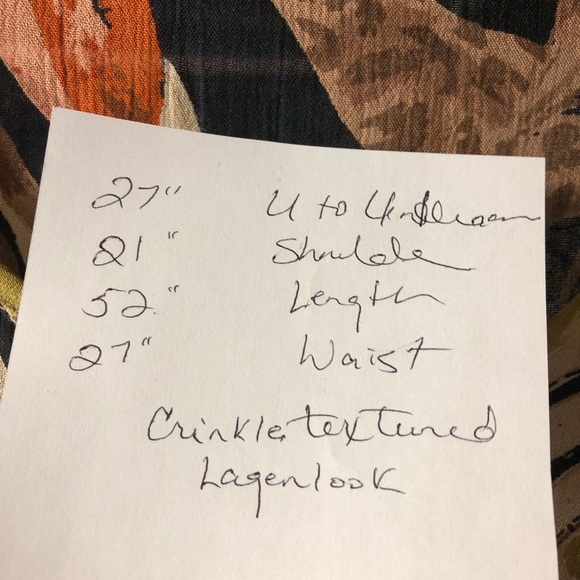 27" U to U
21" Shoulder
52" Length
27" Waist
Crinkle textured
Lagenlook